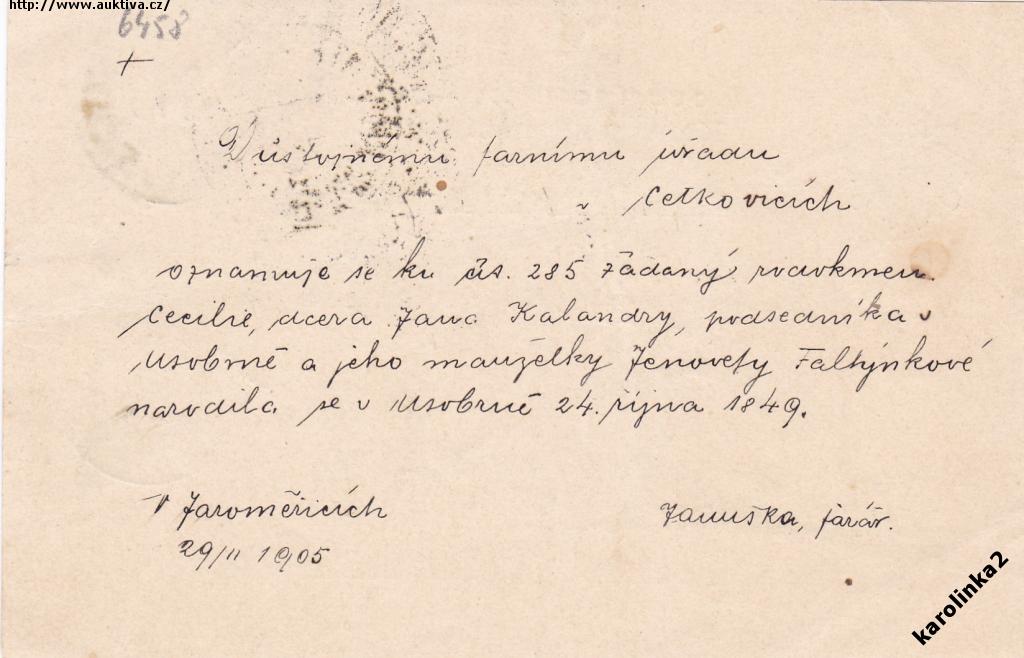 http://www.auktiva.cz/
6458
+
Důstojnému farnímu úřadu
v Cetkovicích
oznamuje se ku čís. 285 žádaný rodokmen.
Cecilie, dcera Jana Kalandry, podsedníka v
Úsobrně a jeho manželky Jenovefy Faltýnkové
narodila se v Úsobrně 24. října 1849.
V Jaroměřicích
29/II 1905
Januška, farář.
karolinka2